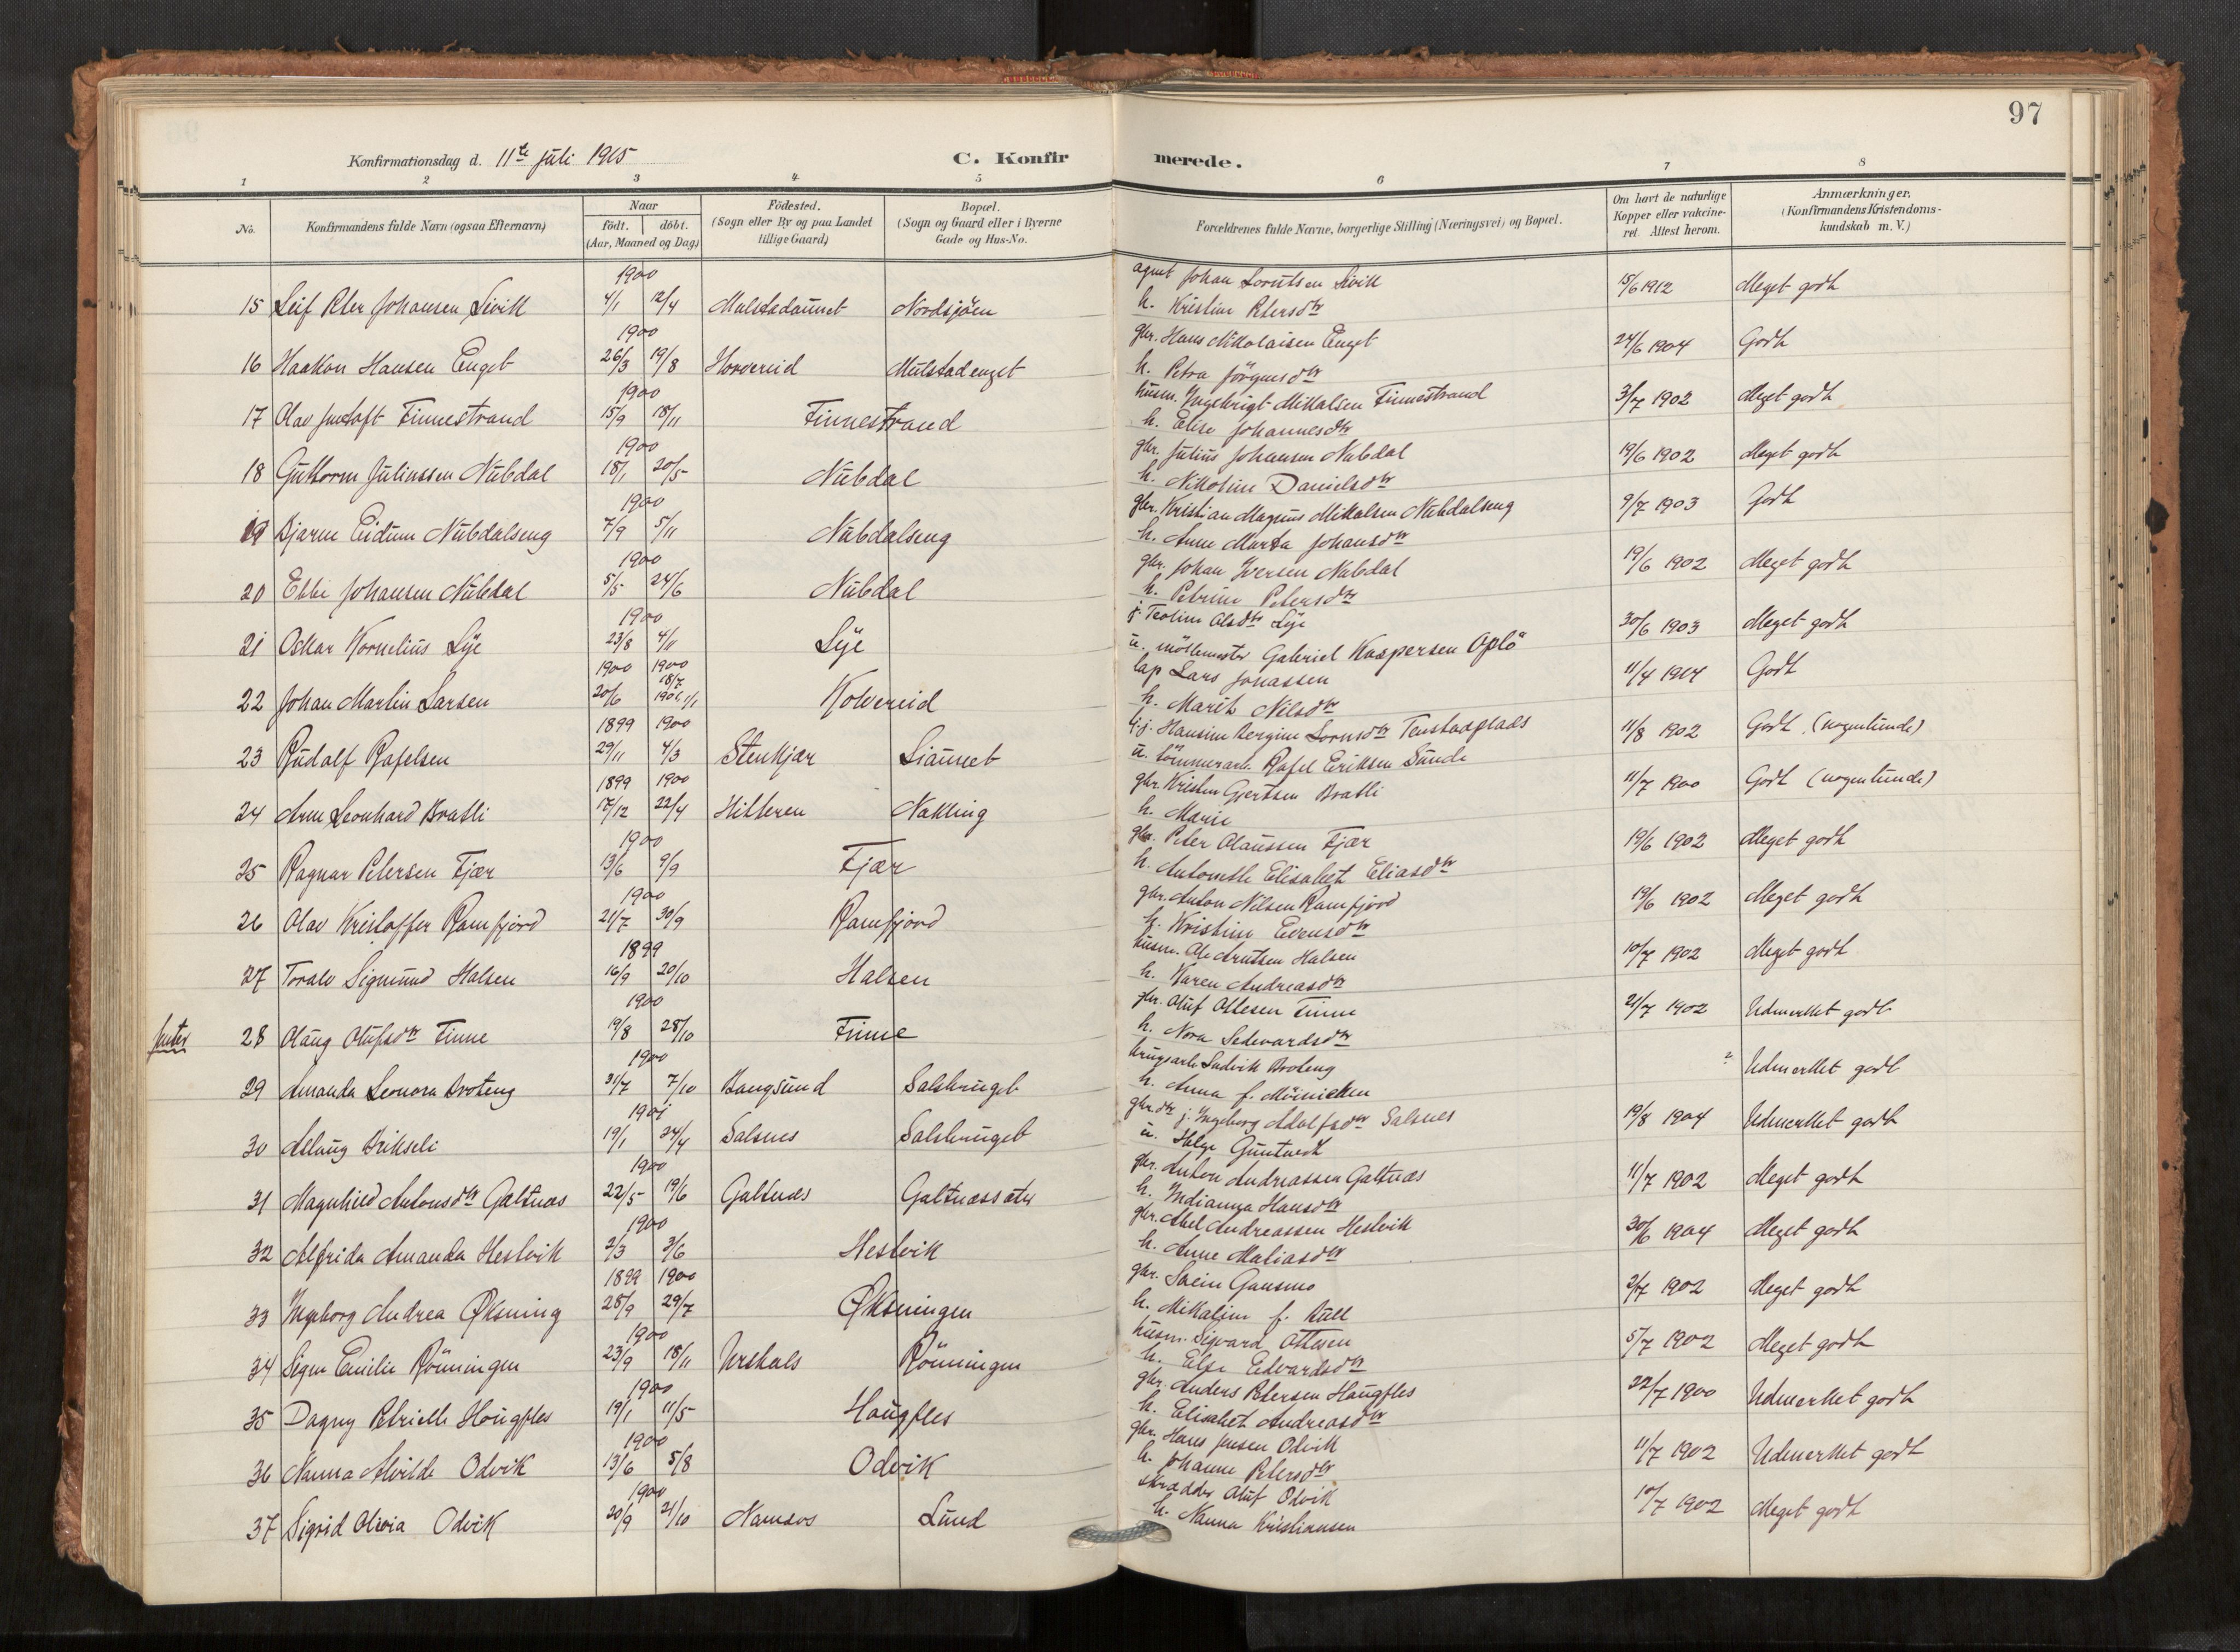 97
Konfirmationsdag d. 11te juli 1915
C. Konfirmerede.
1 2 3 4 5 6 7 8
No. Konfirmandens fulde Navn (ogsaa Efternavn) Naar födt. döbt. (Aar, Maaned og Dag) Födested. (Sogn eller By og paa Landet tillige Gaard) Bopæl. (Sogn og Gaard eller i Byerne Gade og Hus-No. Forældrenes fulde Navne, borgerlige Stilling (Næringsvei) og Bopæl. Om havt de naturlige Kopper eller vakcineret. Attest herom. Anmærkninger. (Konfirmandens Kristendomskundskab m. V.)
1900 Johan
15 Leif Peter Johansen 4/1 12/4 Nordsjöen h. Kristine Petersdtr 15/6 1912 Meget godt
1900 gbr. Hans Nikolaisen Enget
16 Haakon Hansen Enget 26/3 19/8 h. Petra Jörgensdtr 24/6 1904 Godt
1900 husm. Ingebrigt Mikalsen Finnestrand
17 Olav Finnestrand 15/9 18/11 Finnestrand h. Elise Johannesdtr 3/7 1902 Meget godt
1900 gbr. Julius Johansen Nubdal
18 Guttorm Juliussen Nubdal 18/1 20/5 Nubdal h. Nikoline Danielsdtr 19/6 1902 Meget godt
1900 gbr. Kristian Magnus Mikalsen Nubdalseng
19 Bjarne Eidum Nubdalseng 7/9 5/11 Nubdalseng h. Anne Marta Johansdtr 9/7 1903 Godt
1900 gbr. Johan Iversen Nubdal
20 Johansen Nubdal 5/5 24/6 Nubdal h. Petrine Petersdtr 19/6 1902 Meget godt
1900 Olsdtr Lye
21 Oskar Kornelius Lye 23/8 4/11 Lye u. möllemester Gabriel Kaspersen Oplö 30/6 1903 Meget godt
1900 1900 lap Lars Jonassen
22 Johan Martin Larsen 20/6 18/7 Kolvereid h. Marit Nilsdtr 11/4 1914 Godt
1899 1900
23 Rudolf Rafelsen 29/11 4/3 Stenkjær Rafel Eriksen Sunde 11/8 1902 Godt (nogenlunde)
1899 1900 gbr. Kristen Gjertsen Bratli
24 Arne Leonhard Bratli 17/12 22/4 Hitteren Nakling h. Marie 11/7 1900 Godt (nogenlunde)
1900 gbr. Peter Olaussen Fjær
25 Ragnar Petersen Fjær 13/6 9/9 Fjær h. Antonette Elisabet Eliasdtr 19/6 1902 Meget godt
1900 gbr. Anton Nilsen Ramfjord
26 Olav Kristoffer Ramfjord 21/7 30/9 Ramfjord h. Kristine Evensdtr 19/6 1902 Meget godt
1899 husm. Ole Arntsen Halsen
27 Toralv Sigmund Halsen 16/9 20/10 Halsen h. Karen Andreasdtr 10/7 1902 Meget godt
1900 gbr. Oluf Ottesen Finne
Jenter 28 Olaug Olufsdtr Finne 19/8 28/10 Finne h. Nora Sedevardsdtr 21/7 1902 Udmerket godt
1900 brugsarb. Ludvik Broteng
29 Amanda Leonora Broteng 31/7 7/10 Bangsund Salsbruget h. Anna f. ? Udmerket godt
1901 gbr.dtr j. Ingeborg Adolfsdtr Salsnes
30 Aslaug 19/1 24/4 Salsnes Salsbruget u. Helge 19/8 1904 Udmerket godt
1900 gbr. Anton Andreassen Galtnæs
31 Magnhild Antonsdtr Galtnæs 22/5 19/6 Galtnæs Galtnæssæter h. Indianna Hansdtr 11/7 1902 Meget godt
1900 gbr. Abel Andreassen Hestvik
32 Alfrida Amanda Hestvik 2/3 3/6 Hestvik h. Anne Maliasdtr 30/6 1904 Meget godt
1899 1900 gbr. Svein Gansmo
33 Ingeborg Andrea Øksning 28/9 29/7 Øksningen h. Mikaline f. 2/7 1902 Meget godt
1900 husm. Sigvard Ottesen
34 Signe Emilie Rönningen 23/9 18/11 Rönningen h. Else Edvardsdtr 5/7 1902 Meget godt
1900 gbr. Anders Petersen Haugfles
35 Dagny Petrielle Haugfles 19/1 11/5 Haugfles h. Elisabet Andreasdtr 22/7 1900 Udmerket godt
1900 gbr. Hans Jensen Odvik
36 Nanna Alvilde Odvik 13/6 5/8 Odvik h. Johanne Petersdtr 11/7 1902 Udmerket godt
1900 skrædder Oluf Odvik
37 Sigrid Olivia Odvik 20/9 21/10 Namsos Lund h. Nanna Kristiansen 10/7 1902 Meget godt